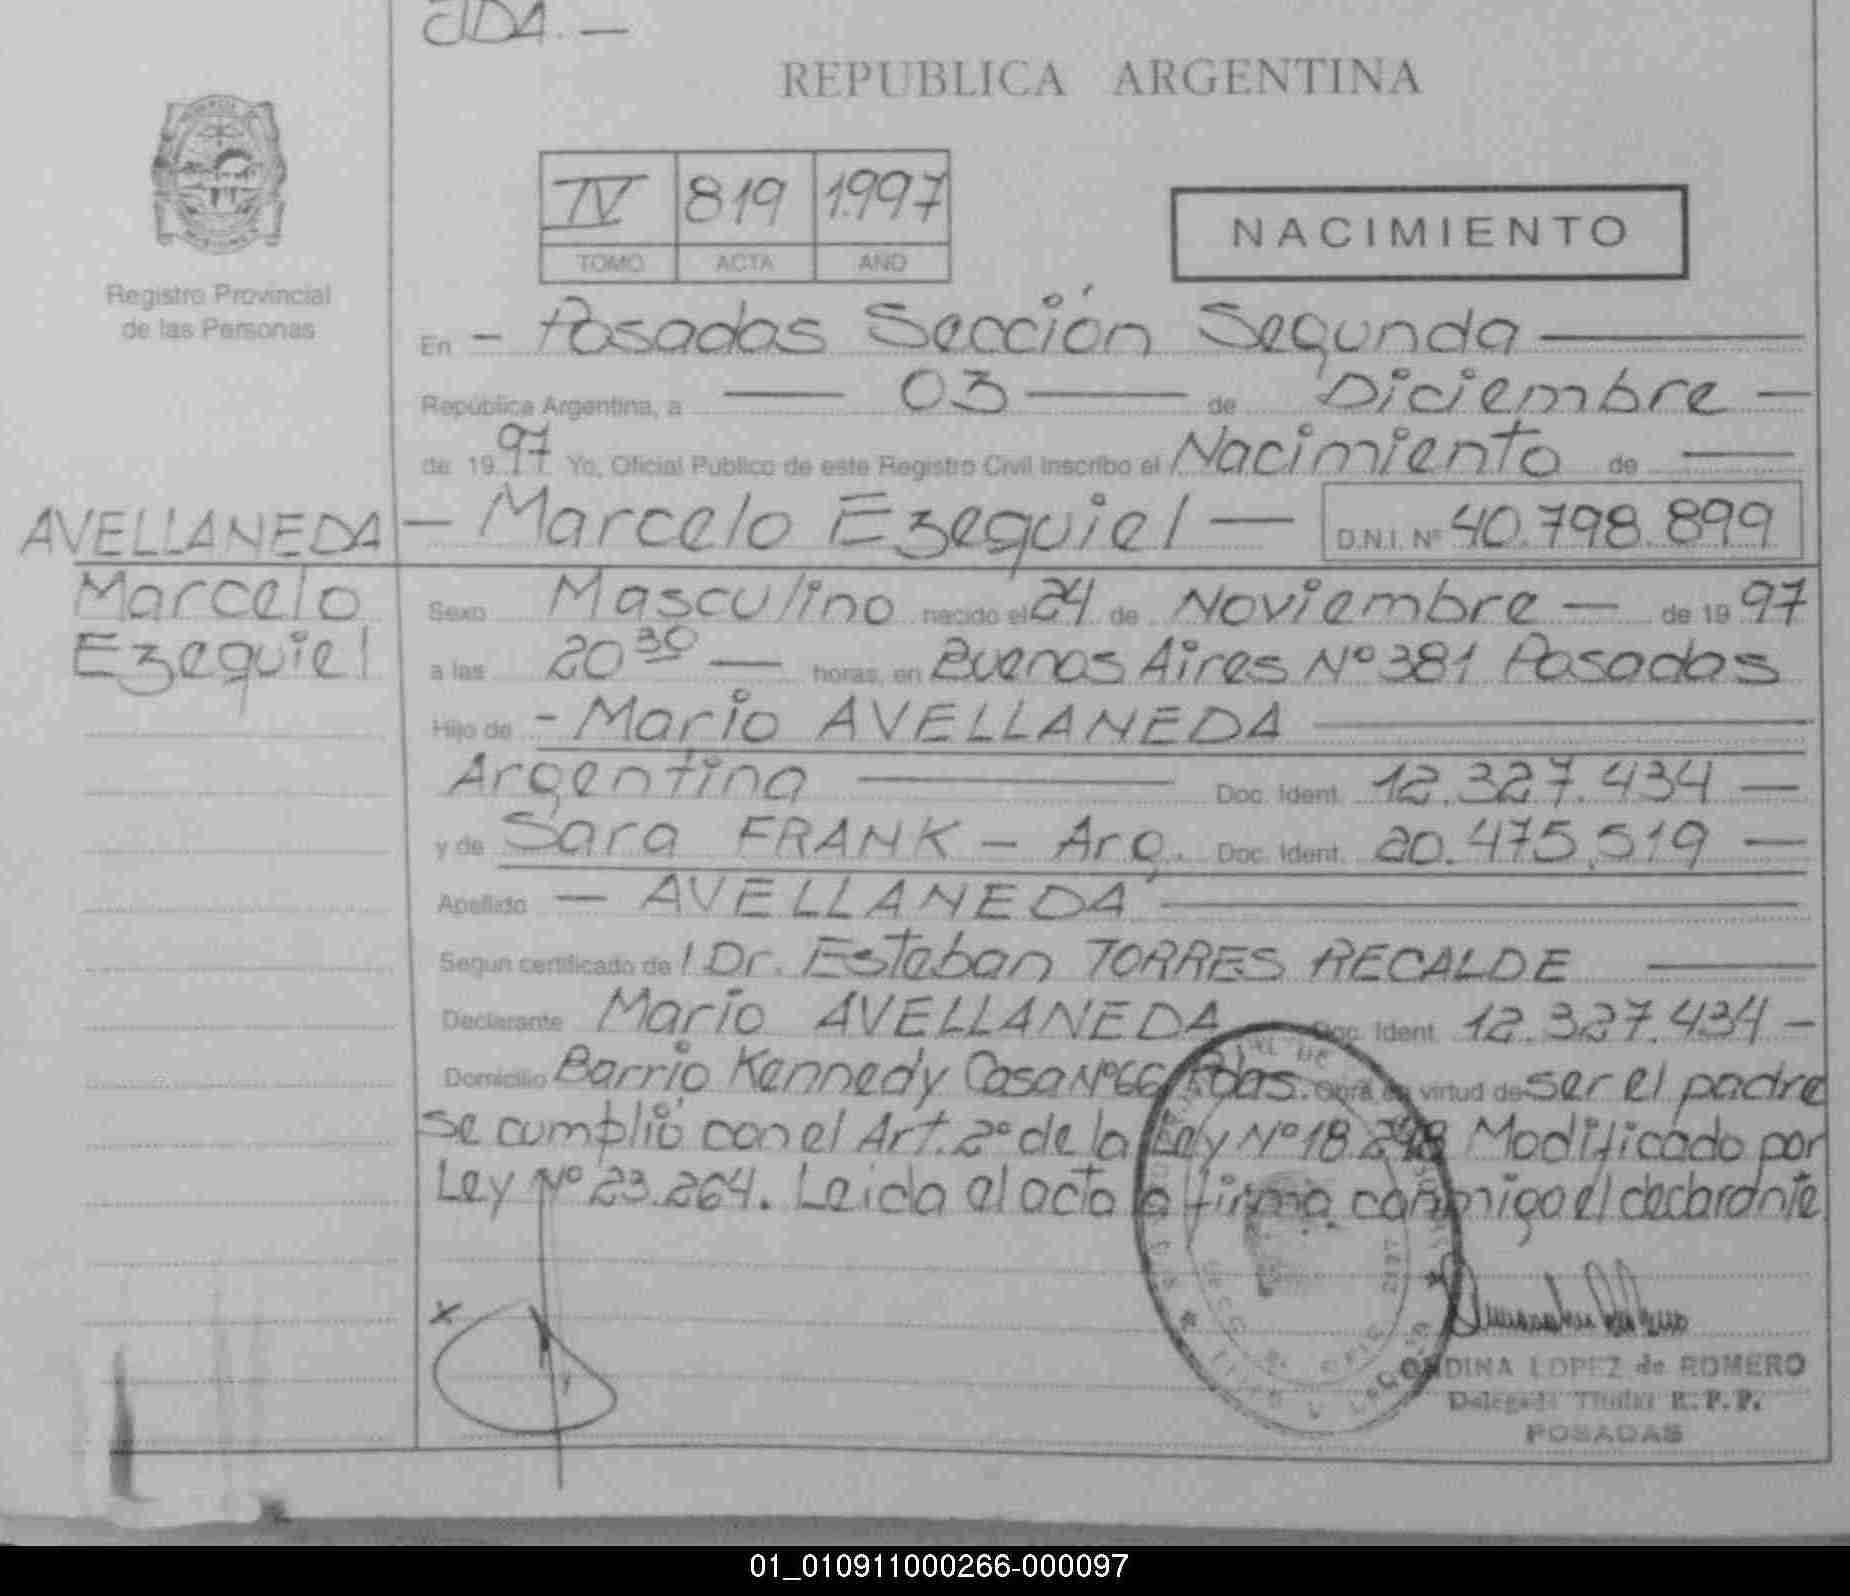 REPUBLICA ARGENTINA
IV 819 1.997
TOMO ACTA AÑO
NACIMIENTO
Registro Provincial
de las Personas
En - Posadas Sección Segunda
República Argentina, a 03 de Diciembre
de 1997 Yo, Oficial Publico de este Registro Civil inscribo el Nacimiento de
AVELLANEDA
Marcelo
Ezequiel
- Marcelo Ezequiel - D.N.I. Nº 40.798.899
Sexo Masculino nacido el 24 de Noviembre - de 1997
a las 20 30 - horas, en Buenos Aires Nº 381 Posadas
Hijo de - Mario AVELLANEDA
Argentina Doc. Ident. 12.327.434 -
y de Sara FRANK - Arg. Doc. Ident. 20.475.519 -
Apellido - AVELLANEDA
Según certificado de Dr. Esteban TORRES RECALDE
Declarante Mario AVELLANEDA Doc. Ident. 12.327.434 -
Domicilio Barrio Kennedy Casa Nº 66 Pdas. Obra en virtud de ser el padre
se cumplió con el Art. 2º de la Ley Nº 18.248 Modificado por
Ley Nº 23.264. Leida el acta la firma conmigo el declarante
x
ONDINA LOPEZ de ROMERO
Delegada Titular R.P.P.
POSADAS
01_010911000266-000097